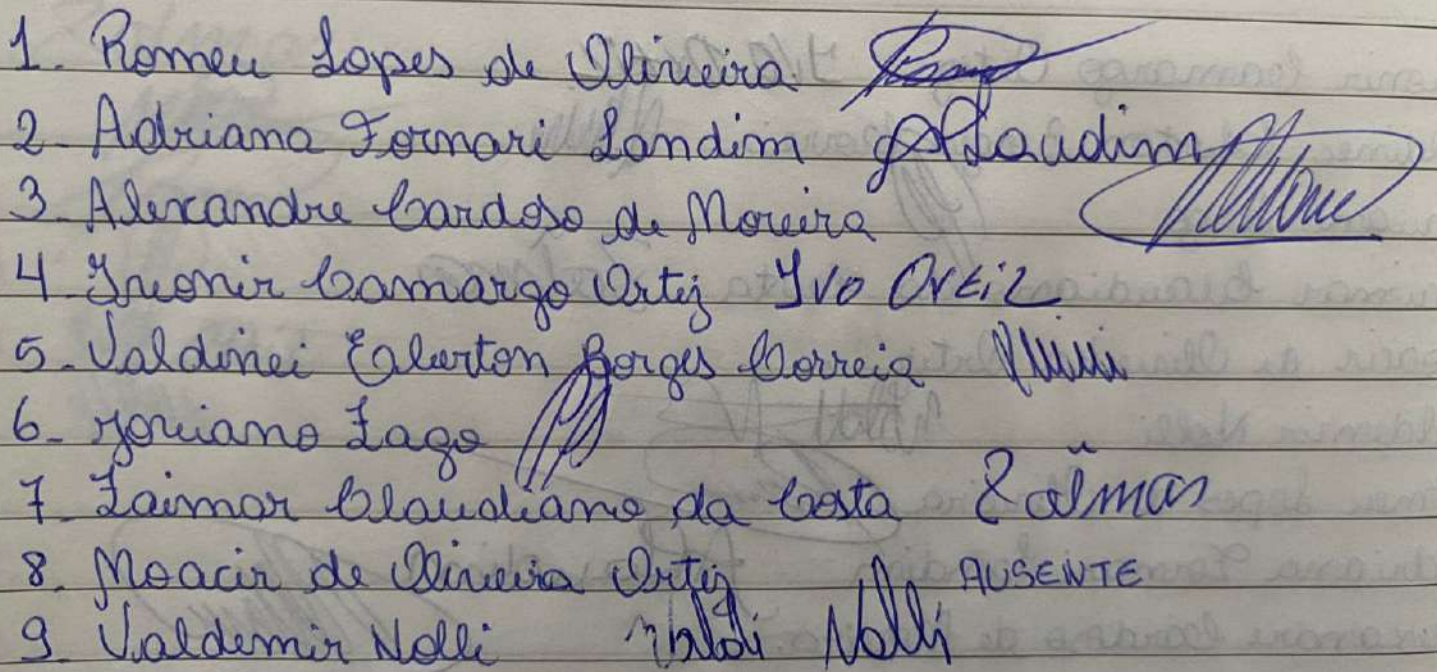 1. Romeu Lopes de Oliveira
2- Adriana Fornari Landim Landim
3- Alexandre Cardoso de Moreira
4 Ivonir Camargo Ortiz Ivo Ortiz
5- Valdinei Ewerton Borges Correia
6- Joviano Zago
7- Zaimar Claudiano da Costa
8. Moacir de Oliveira Ortiz AUSENTE
9. Valdemir Nolli Valdi Nolli